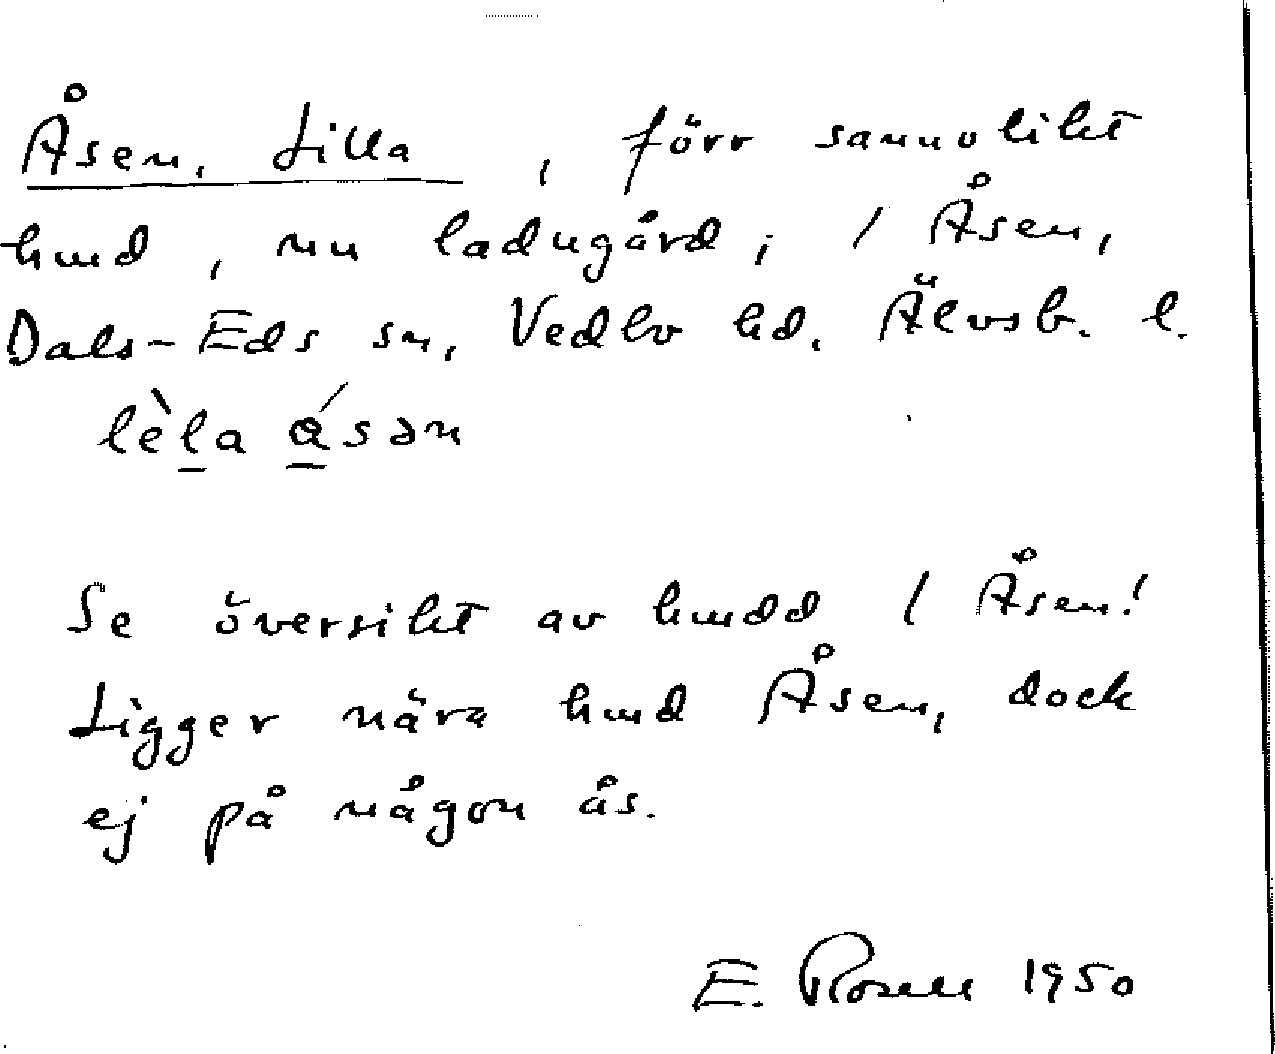 Åsen, Lilla, förr sannolikt
hmd, nu ladugård, / Åsen,
Dals-Eds sn, Vedbo hd. Älvsb. l.
lèla ásən
Se översikt av hmdd / Åsen!
Ligger nära hmd Åsen, dock
ej på någon ås.
E. Rosell 1950